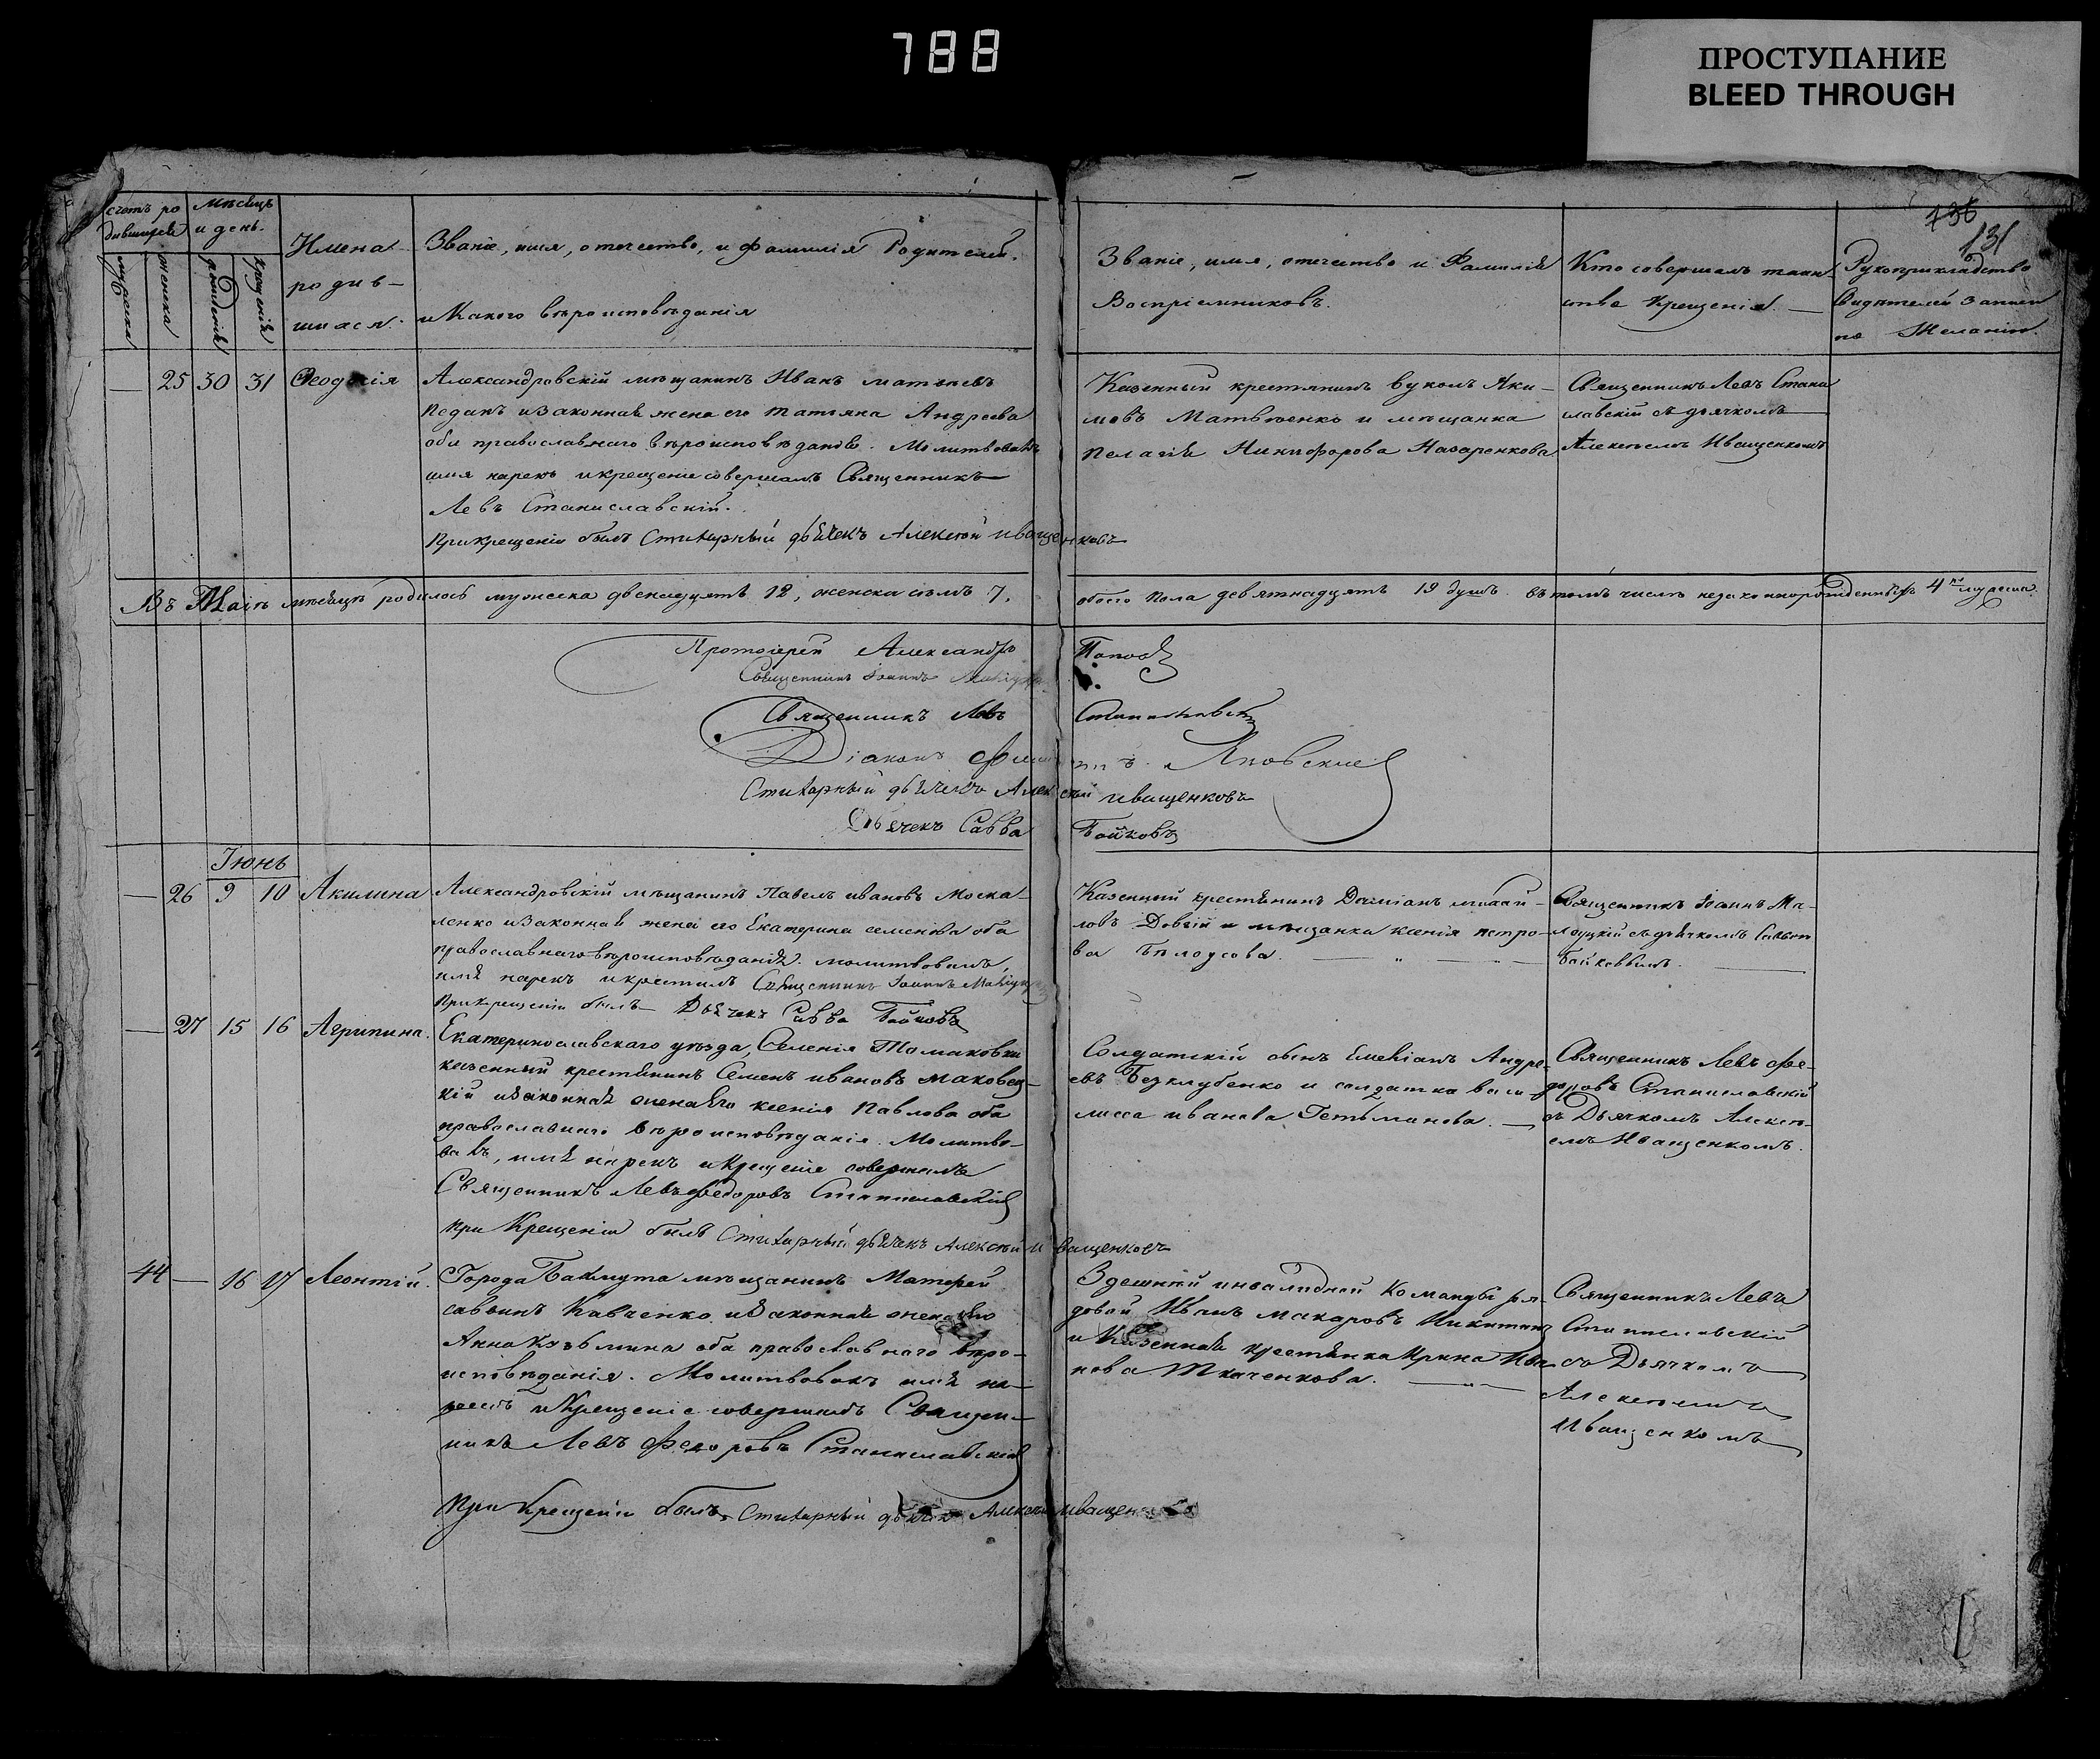 788
ПРОСТУПАНИЕ
BLEED THROUGH
136
131
счотъ ро
дившихся
Мѣсяцъ
и день.
мужеска
женска
рожденія
крещенія
Имена
родив-
шихся.
Званіе, имя, отечество, и фамилія Родителей.
и Какого вѣроисповѣданія
Званіе, имя, отечество и Фамилія
Воспріемниковъ.
Кто совершалъ таин
ства Крещенія.
Рукоприкладство
Свидѣтелей записи
по Желанію.
— 25 30 31 Ѳеодосія
Александровскій мѣщанинъ Иванъ Матвѣевъ
и законная жена его Татьяна Андреева
оба православнаго вѣроисповѣданія. Молитвовалъ
имя нарекъ и крещеніе совершалъ Священникъ
Левъ Станиславскій.
При крещеніи былъ Стихарный дьячекъ Алексѣй Иващенковъ
Казенный крестьянинъ Вуколъ Яки-
мовъ Матвѣенко и мѣщанка
Пелагія Никифорова Назаренкова
Священникъ Левъ Стани
славскій съ дьячкомъ
Алексѣемъ Иващенкомъ
Въ Маіѣ мѣсяцѣ родилось мужеска двенадцать 12, женска семь 7. обоего пола девятнадцать 19 душъ. въ томъ числѣ незаконнорожденныхъ 4
Протоіерей Александръ Поповъ
Священникъ Іоаннъ
Священникъ Левъ Станиславскій
Діаконъ Филиппъ Яновскій
Стихарный дьячекъ Алексѣй Иващенковъ
Дьячекъ Савва Бойковъ
Іюнь
— 26 9 10 Акилина
Александровскій мѣщанинъ Павелъ Ивановъ Моска-
ленко и законная жена его Екатерина Семенова оба
православнаго вѣроисповѣданія. молитвовалъ,
имя нарекъ и крестилъ Священникъ Іоаннъ
При крещеніи былъ Дьячекъ Савва Бойковъ
Казенный крестьянинъ Даміанъ Михай-
ловъ Довгій и мѣщанка Ксенія Петро-
ва Бѣлоусова.
Священникъ Іоаннъ Ма-
съ дьячкомъ Саввою
Бойковымъ.
— 27 15 16 Агрипина.
Екатеринославскаго уѣзда, Селенія Томаковки
казенный крестьянинъ Семенъ Ивановъ Маковец-
кій и законная жена его Ксенія Павлова оба
православнаго вѣроисповѣданія. Молитво-
валъ, имя нарекъ и Крещеніе совершалъ
Священникъ Левъ Федоровъ Станиславскій
при Крещеніи былъ Стихарный дьячекъ Алексѣй Иващенковъ
Солдатскій сынъ Емеліанъ Андре-
евъ Безклубенко и солдатка Васи-
лисса Иванова Гетьманова. —
Священникъ Левъ Фе-
доровъ Станиславскій
съ Дьячкомъ Алексѣ-
емъ Иващенкомъ.
44 — 16 17 Леонтій.
Города Бахмута мѣщанинъ Матфей
Саввинъ Кавченко и законная жена его
Анна Кузьмина оба православнаго вѣро-
исповѣданія. Молитвовалъ имя на-
рекъ и Крещеніе совершалъ Священ-
никъ Левъ Федоровъ Станиславскій
При Крещеніи былъ Стихарный дьячекъ Алексѣй Иващенковъ
Здешней инвалидной Команды ря-
довой Иванъ Макаровъ Никитинъ
и Казенная крестьянка Ирина Ива-
нова Ткаченкова.
Священникъ Левъ
Станиславскій
съ Дьячкомъ
Алексѣемъ
Иващенкомъ